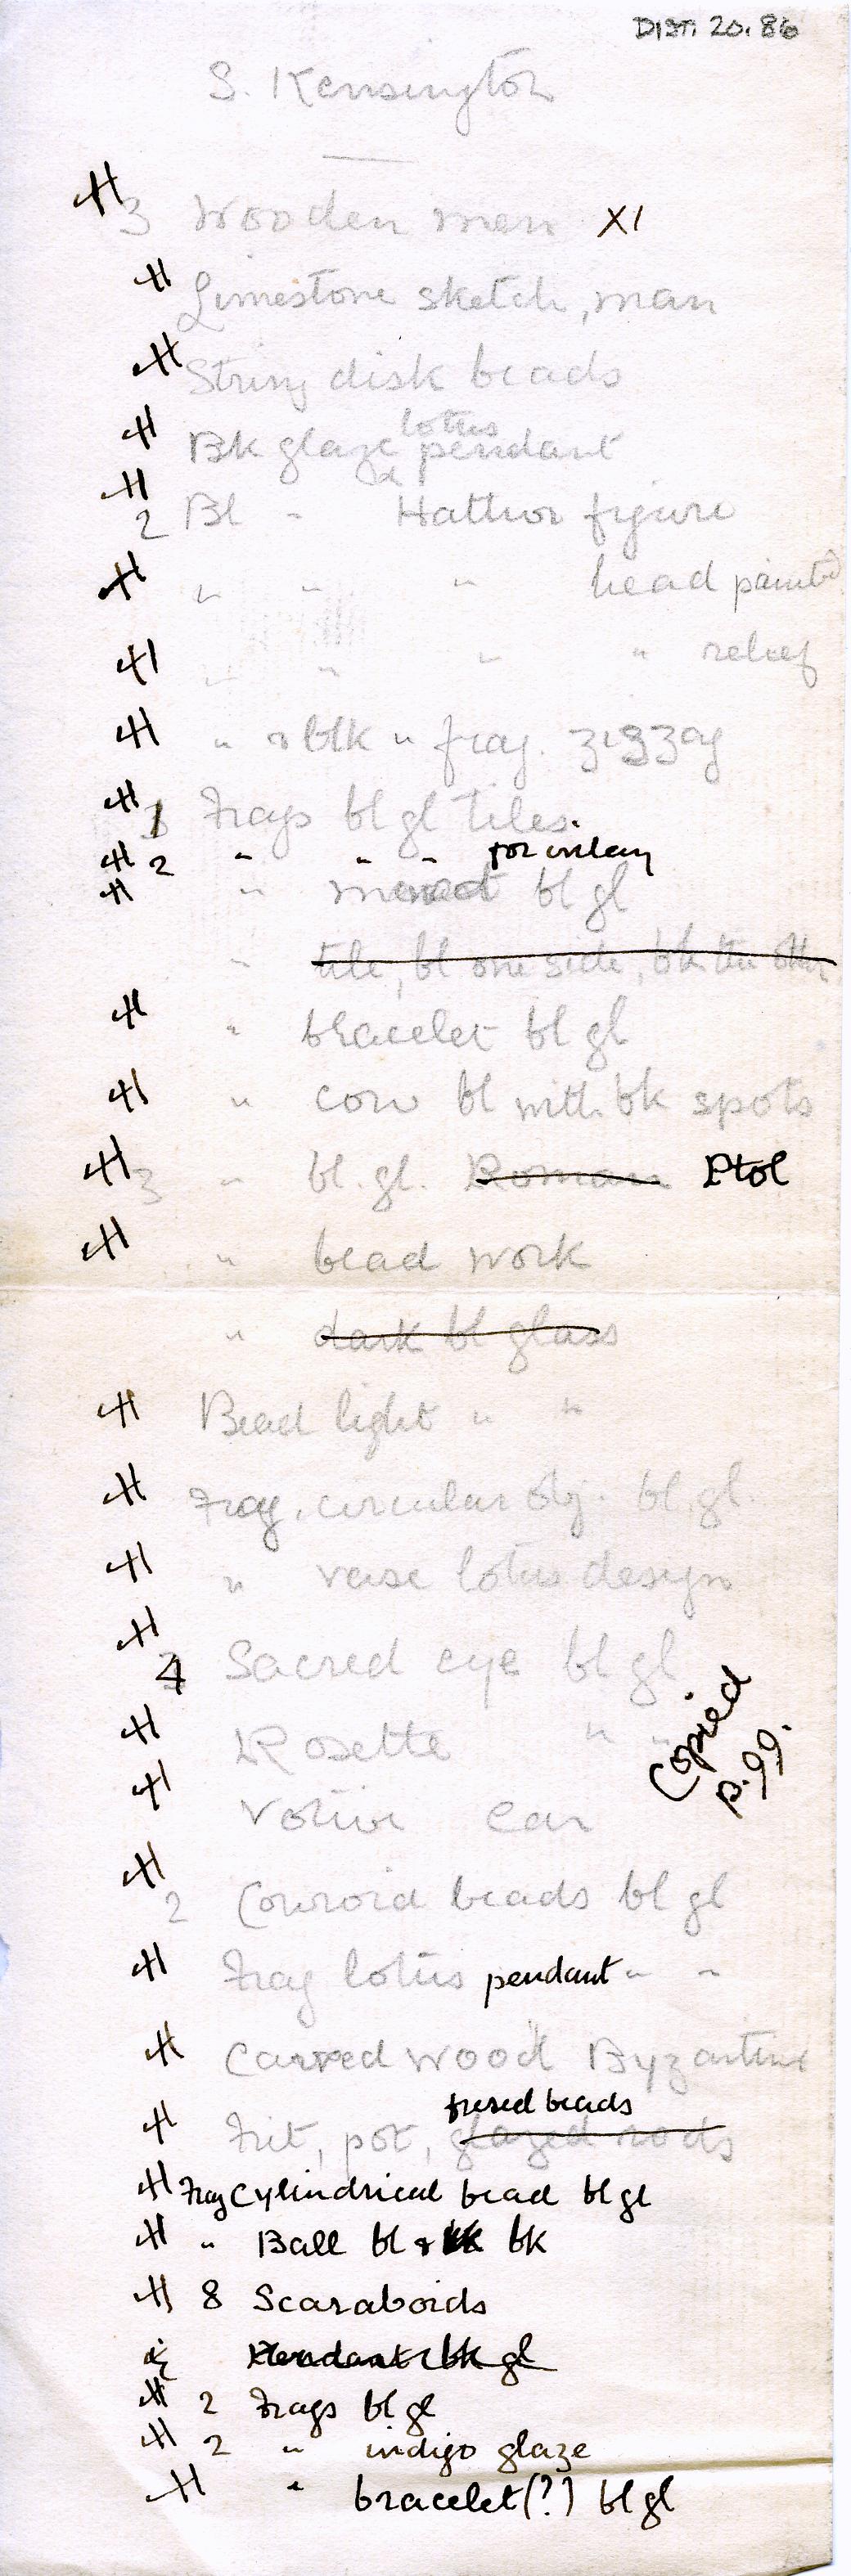 DIST. 20.86
S. Kensington
H 3 Wooden men XI
H Limestone sketch, man
H String disk beads
H Bk glaze lotus pendant
H 2 Bl " Hathor figure
H " " " head painted
H " " " " relief
H " & blk " frag. zigzag
H 1 Frags bl gl tiles.
H 2 " " " for inlay
H " menat bl gl
" tile, bl one side, bk the other
H " bracelet bl gl
H " cow bl with bk spots
H 3 " bl. gl. Roman Ptol
H " bead work
" dark bl glass
H Bead light " "
H Frag. circular obj. bl. gl.
H " vase lotus design
H 4 Sacred eye bl gl
H Rosette " "
H Votive ear
Copied
p. 99.
H 2 Cowroid beads bl gl
H Frag lotus pendant " "
H Carved wood Byzantine
H Frit, pot, glazed rods fused beads
H Frag Cylindrical bead bl gl
H " Ball bl & bk
H 8 Scaraboids
Pendant bk gl
H 2 Frags bl gl
H 2 " indigo glaze
H " bracelet(?) bl gl